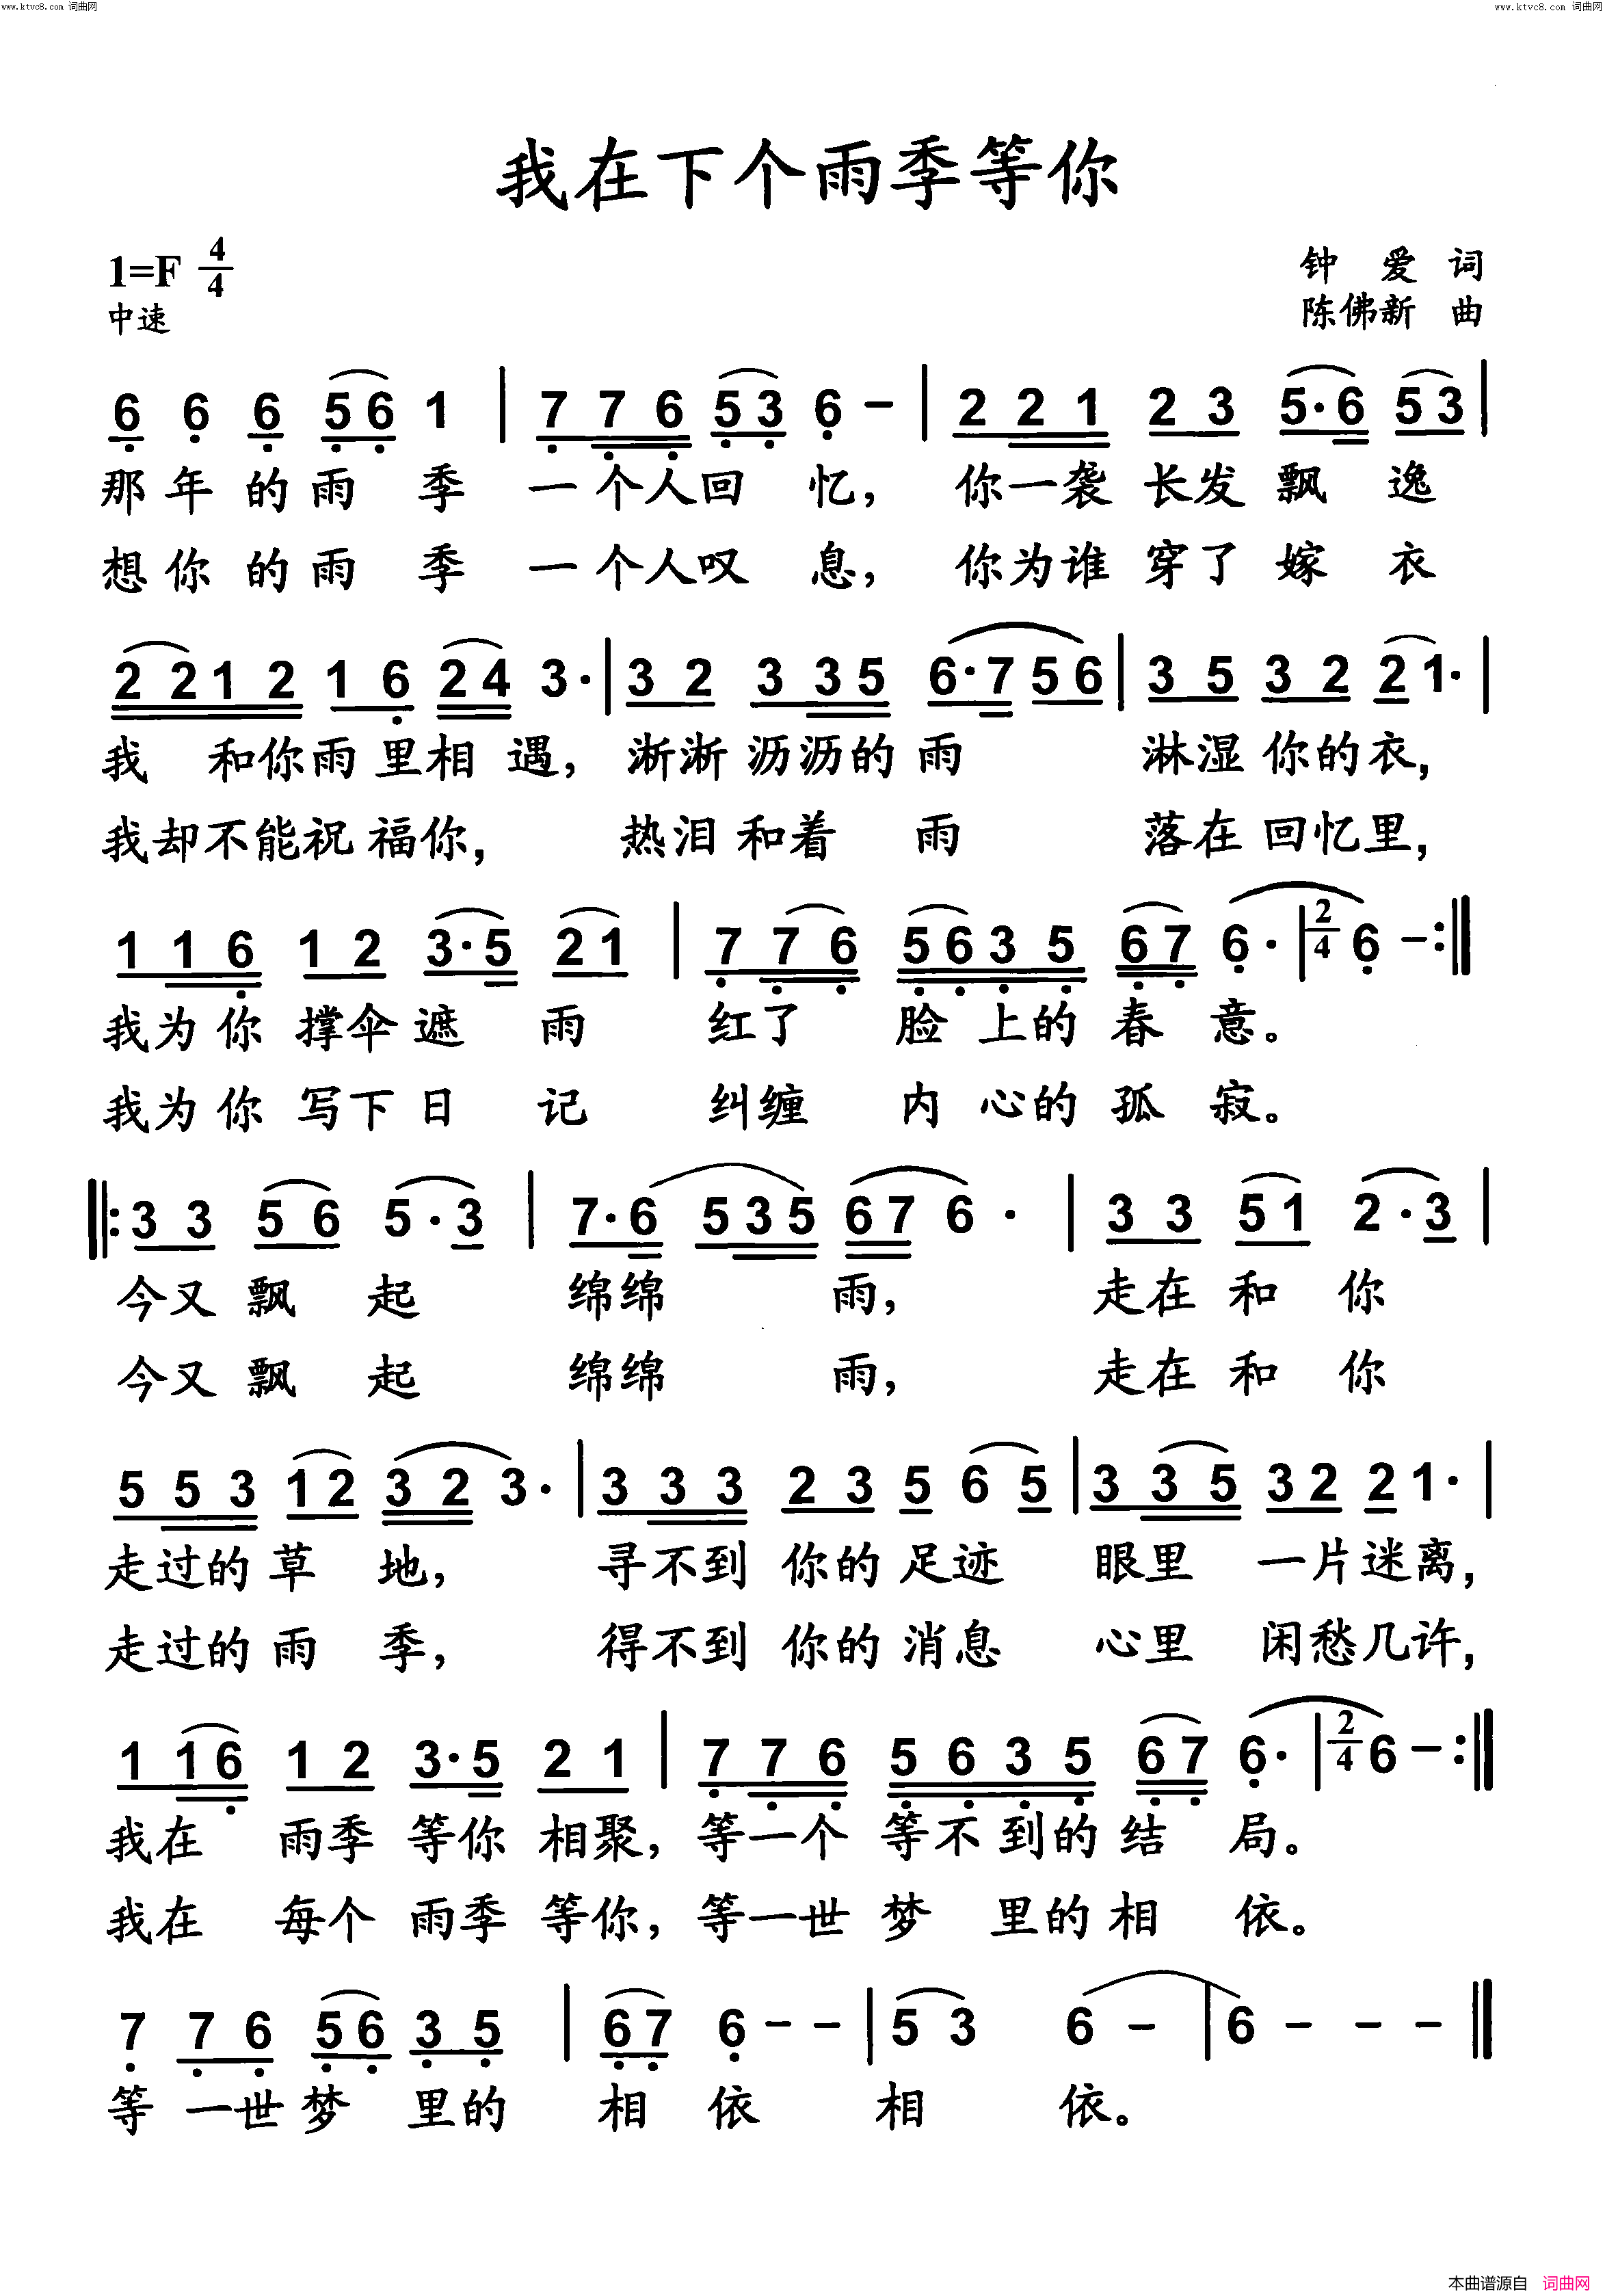 www.ktvc8.com 词曲网
www.ktvc8.com 词曲网
我在下个雨季等你
1=F 4/4
钟 爱 词
中速
陈佛新 曲
6 6 6 5 6 1 | 7 7 6 5 3 6 – | 2 2 1 2 3 5·6 5 3 |
那年的雨 季 一个人回 忆， 你一袭长发飘 逸
想你的雨 季 一个人叹 息， 你为谁穿了嫁 衣
2 2 1 2 1 6 2 4 3· | 3 2 3 3 5 6·7 5 6 | 3 5 3 2 2 1· |
我 和你雨里相 遇， 淅淅沥沥的雨 淋湿你的衣，
我却不能祝福你， 热泪和着 雨 落在回忆里，
1 1 6 1 2 3·5 2 1 | 7 7 6 5 6 3 5 6 7 6· | 2/4 6 – :||
我为你撑伞遮 雨 红了 脸 上的春 意。
我为你写下日 记 纠缠 内 心的孤 寂。
||: 3 3 5 6 5·3 | 7·6 5 3 5 6 7 6· | 3 3 5 1 2·3 |
今又飘 起 绵绵 雨， 走在和 你
今又飘 起 绵绵 雨， 走在和 你
5 5 3 1 2 3 2 3· | 3 3 3 2 3 5 6 5 | 3 3 5 3 2 2 1· |
走过的草 地， 寻不到你的足迹 眼里 一片迷离，
走过的雨 季， 得不到你的消息 心里 闲愁几许，
1 1 6 1 2 3·5 2 1 | 7 7 6 5 6 3 5 6 7 6· | 2/4 6 – :||
我在 雨季等你相聚， 等一个等不到的结 局。
我在 每个雨季等你， 等一世梦 里的相 依。
7 7 6 5 6 3 5 | 6 7 6 – – | 5 3 6 – | 6 – – – ||
等一世梦 里的 相 依 相 依。
本曲谱源自 词曲网